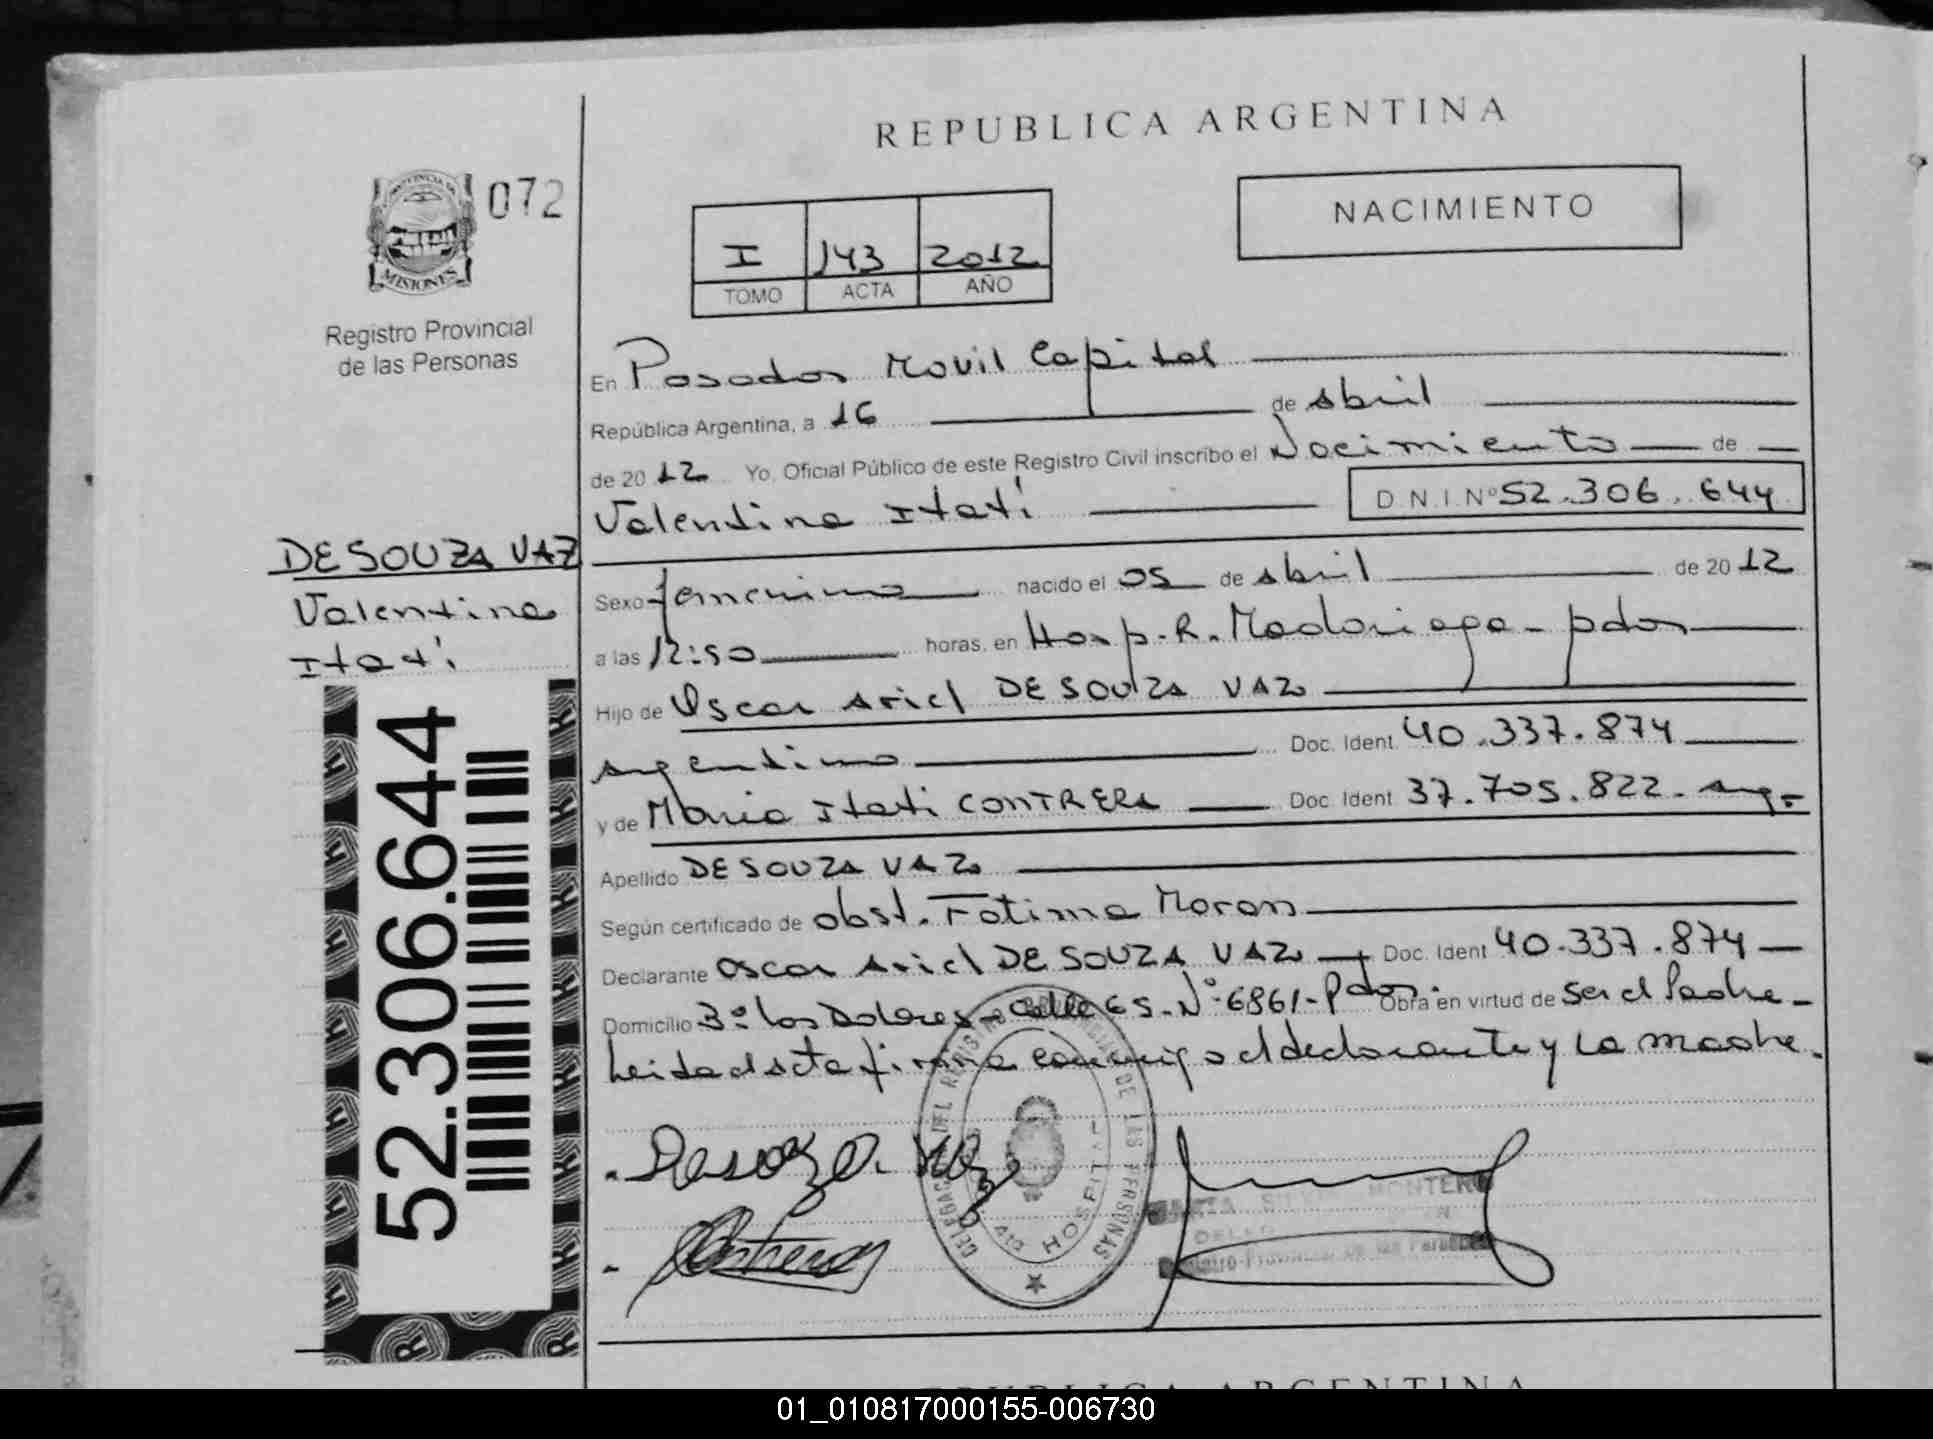 REPUBLICA ARGENTINA
072
NACIMIENTO
I 143 2012
TOMO ACTA AÑO
MISIONES
Registro Provincial
de las Personas
En Posadas Movil Capital
República Argentina, a 16 de abril
de 2012 Yo, Oficial Público de este Registro Civil inscribo el Nacimiento de
Valentina Itatí D.N.I. Nº 52.306.644
DE SOUZA VAZ
Valentina
Itatí
Sexo femenino nacido el 05 de abril de 2012
a las 12:50 horas, en Hosp. R. Madariaga - pdas
Hijo de Oscar Ariel DE SOUZA VAZ
argentino Doc. Ident. 40.337.874
y de Maria Itati CONTRERA Doc. Ident 37.705.822. arg.
Apellido DE SOUZA VAZ
Según certificado de obst. Fatima Moran
Declarante Oscar Ariel DE SOUZA VAZ Doc. Ident 40.337.874
Domicilio Bº Los Dolores - calle 65 - Nº 6861 - Pdas. Obra en virtud de ser el Padre -
Leida el acta firma conmigo el declarante y la madre.
52.306.644
DELEGACION DEL REGISTRO PROVINCIAL DE LAS PERSONAS
HOSPITAL
MONTERO
Registro Provincial de las Personas
REPUBLICA ARGENTINA
01_010817000155-006730